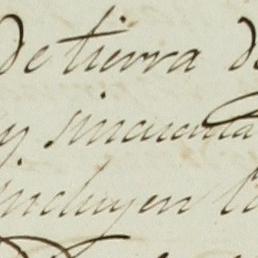 de tierra d
y sincuenta
incluyen lo